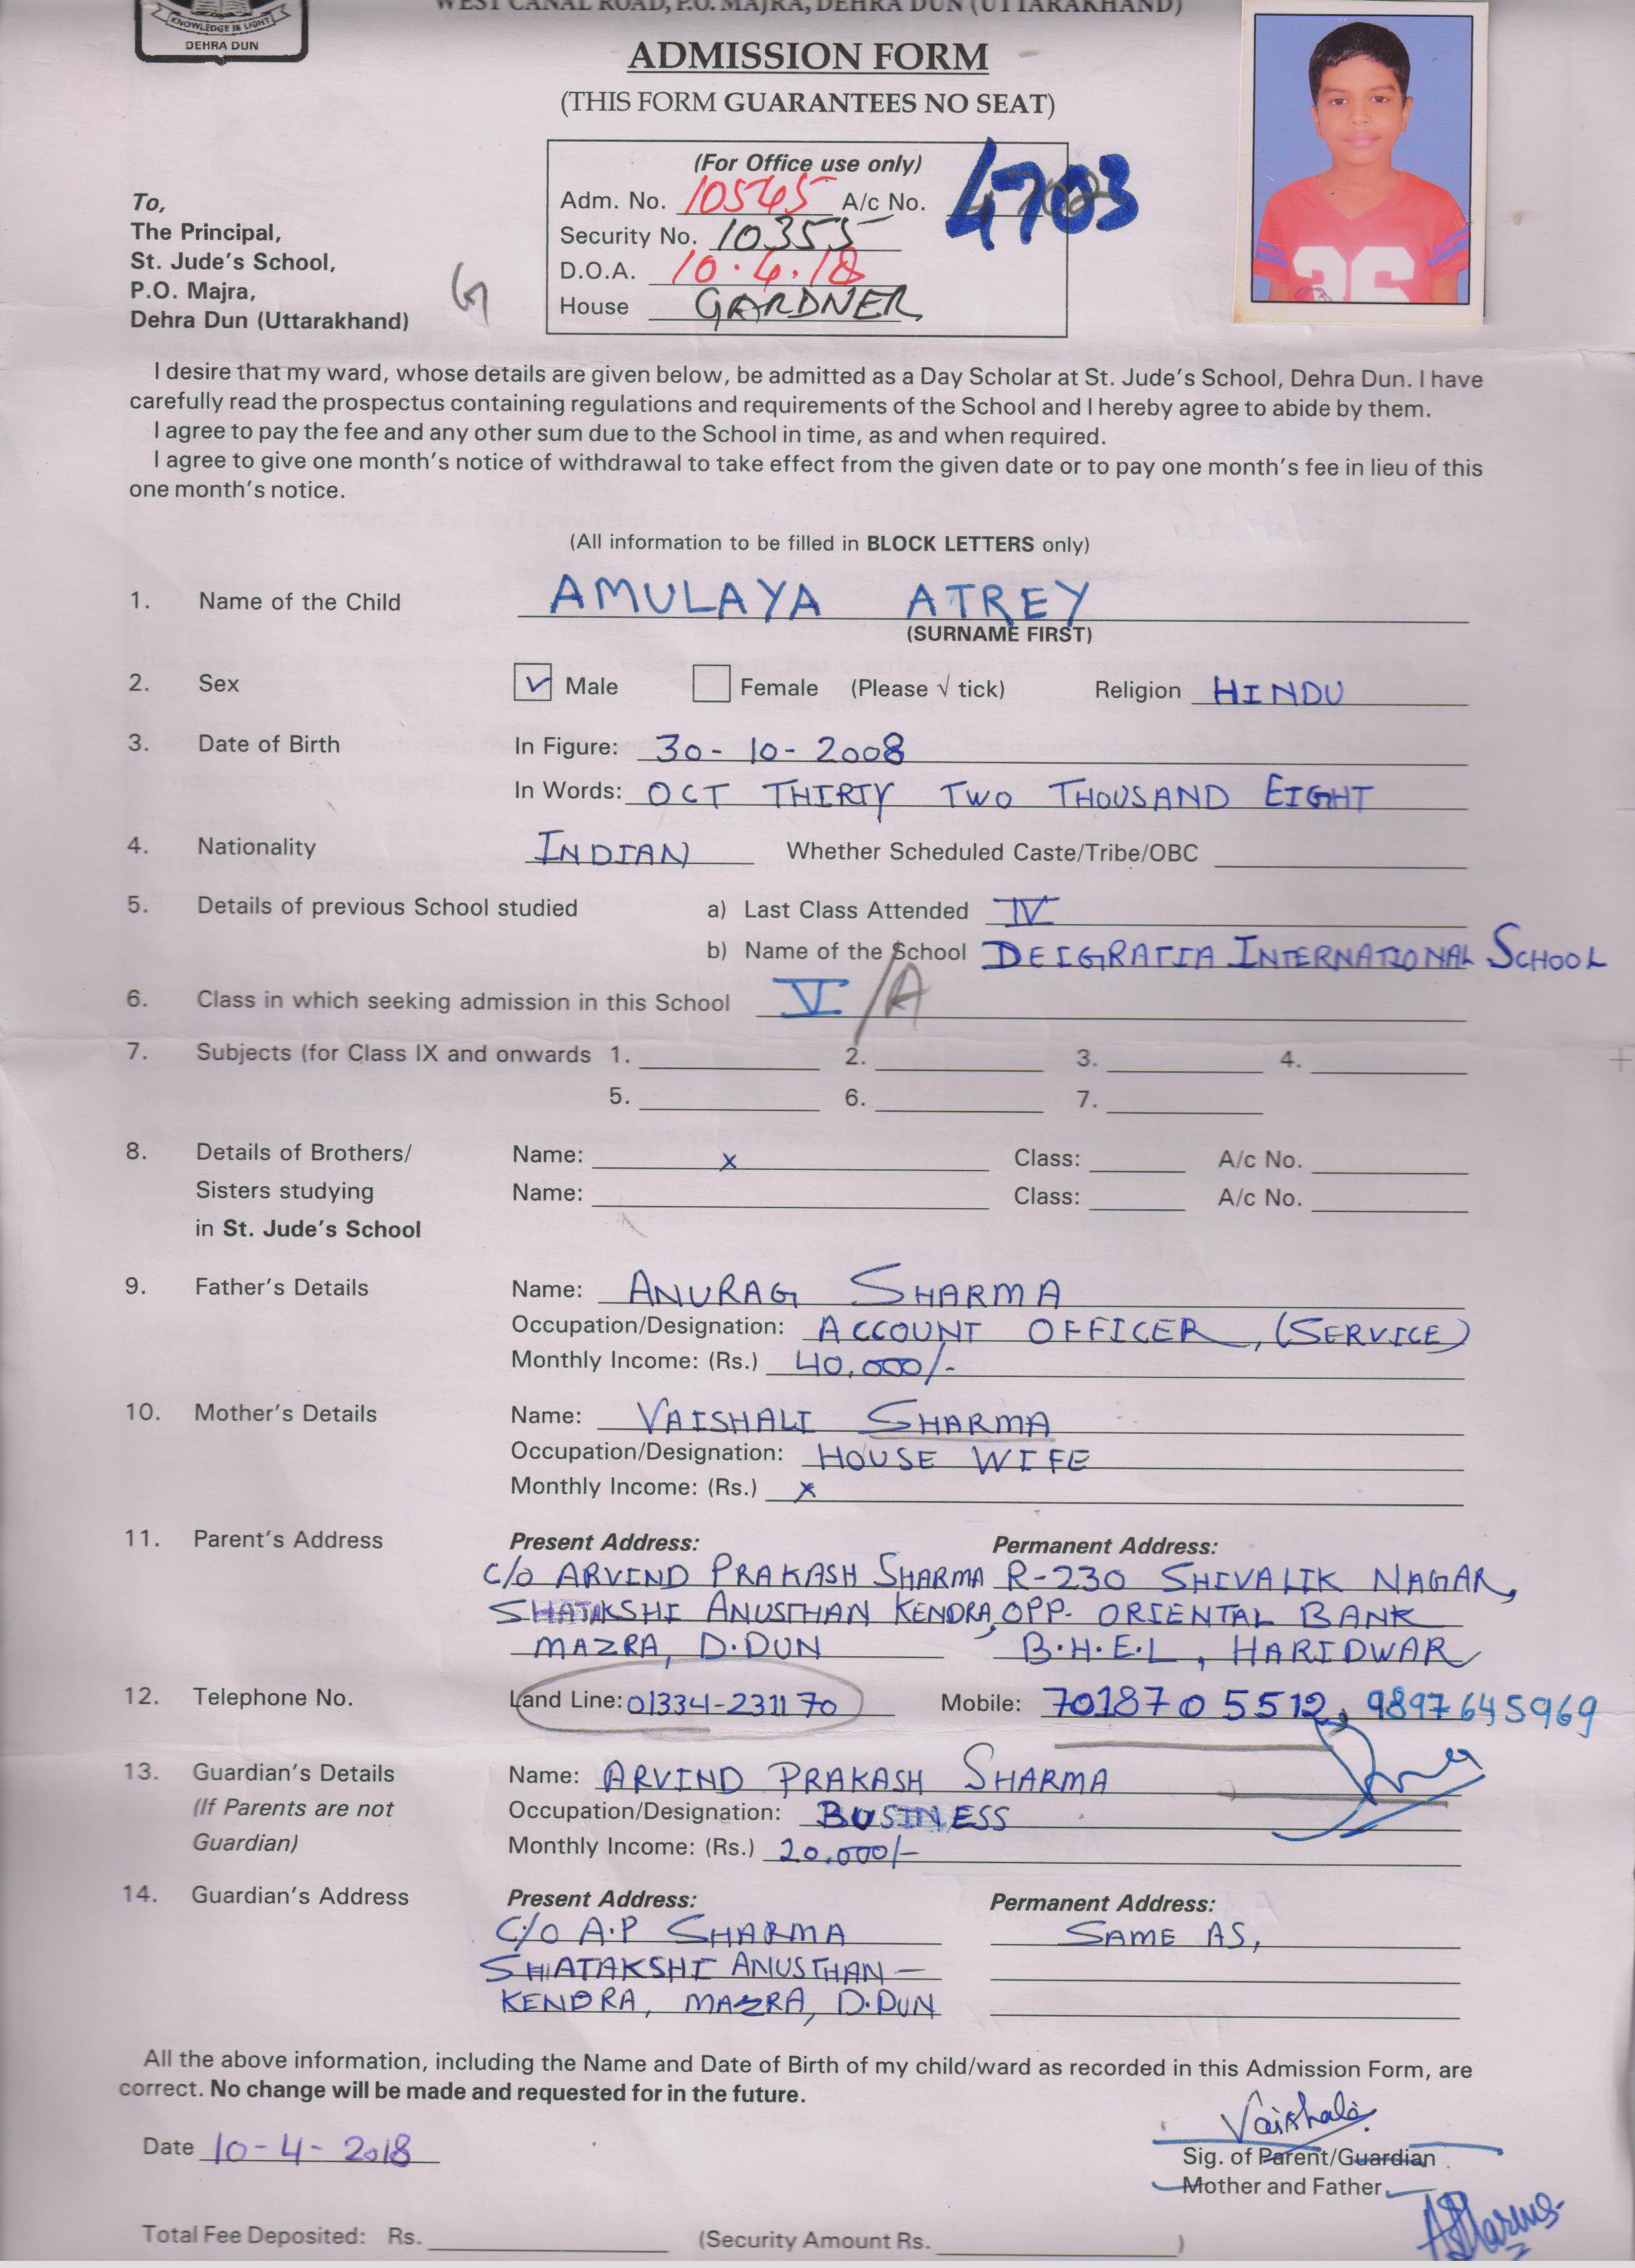 KNOWLEDGE IS LIGHT
DEHRA DUN
WEST CANAL ROAD, P.O. MAJRA, DEHRA DUN (UTTARAKHAND)
ADMISSION FORM
(THIS FORM GUARANTEES NO SEAT)
(For Office use only)
Adm. No. 10545 A/c No. 4703
Security No. 10355
D.O.A. 10.4.18
House GARDNER
To,
The Principal,
St. Jude's School,
P.O. Majra,
Dehra Dun (Uttarakhand)
G
36
I desire that my ward, whose details are given below, be admitted as a Day Scholar at St. Jude's School, Dehra Dun. I have
carefully read the prospectus containing regulations and requirements of the School and I hereby agree to abide by them.
I agree to pay the fee and any other sum due to the School in time, as and when required.
I agree to give one month's notice of withdrawal to take effect from the given date or to pay one month's fee in lieu of this
one month's notice.
(All information to be filled in BLOCK LETTERS only)
1. Name of the Child AMULAYA ATREY
(SURNAME FIRST)
2. Sex ✓ Male Female (Please √ tick) Religion HINDU
3. Date of Birth In Figure: 30-10-2008
In Words: OCT THIRTY TWO THOUSAND EIGHT
4. Nationality INDIAN Whether Scheduled Caste/Tribe/OBC
5. Details of previous School studied a) Last Class Attended IV
b) Name of the School DEIGRATIA INTERNATIONAL SCHOOL
6. Class in which seeking admission in this School V/A
7. Subjects (for Class IX and onwards 1. 2. 3. 4.
5. 6. 7.
8. Details of Brothers/ Name: x Class: A/c No.
Sisters studying Name: Class: A/c No.
in St. Jude's School
9. Father's Details Name: ANURAG SHARMA
Occupation/Designation: ACCOUNT OFFICER, (SERVICE)
Monthly Income: (Rs.) 40,000/-
10. Mother's Details Name: VAISHALI SHARMA
Occupation/Designation: HOUSE WIFE
Monthly Income: (Rs.) x
11. Parent's Address Present Address: Permanent Address:
C/o ARVIND PRAKASH SHARMA R-230 SHIVALIK NAGAR,
SHATAKSHI ANUSTHAN KENDRA, OPP. ORIENTAL BANK
MAZRA, D.DUN B.H.E.L, HARIDWAR
12. Telephone No. Land Line: 01334-231170 Mobile: 7018705512, 9897645969
13. Guardian's Details Name: ARVIND PRAKASH SHARMA
(If Parents are not Occupation/Designation: BUSINESS
Guardian) Monthly Income: (Rs.) 20,000/-
14. Guardian's Address Present Address: Permanent Address:
C/O A.P SHARMA SAME AS,
SHATAKSHI ANUSTHAN-
KENDRA, MAZRA, D.DUN
All the above information, including the Name and Date of Birth of my child/ward as recorded in this Admission Form, are
correct. No change will be made and requested for in the future.
Vaishali
Date 10-4-2018
Sig. of Parent/Guardian
Mother and Father
ASharma
Total Fee Deposited: Rs. (Security Amount Rs. )